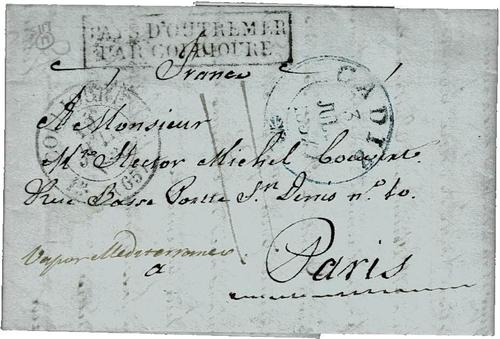 PAYS D'OUTREMER
PAR COLLIOURE
France
CADIZ
3
JUL
A Monsieur
Mr. Hector Michel
Rue Basse Porte St. Denis no. 10.
Vapor Mediterraneo
a
Paris